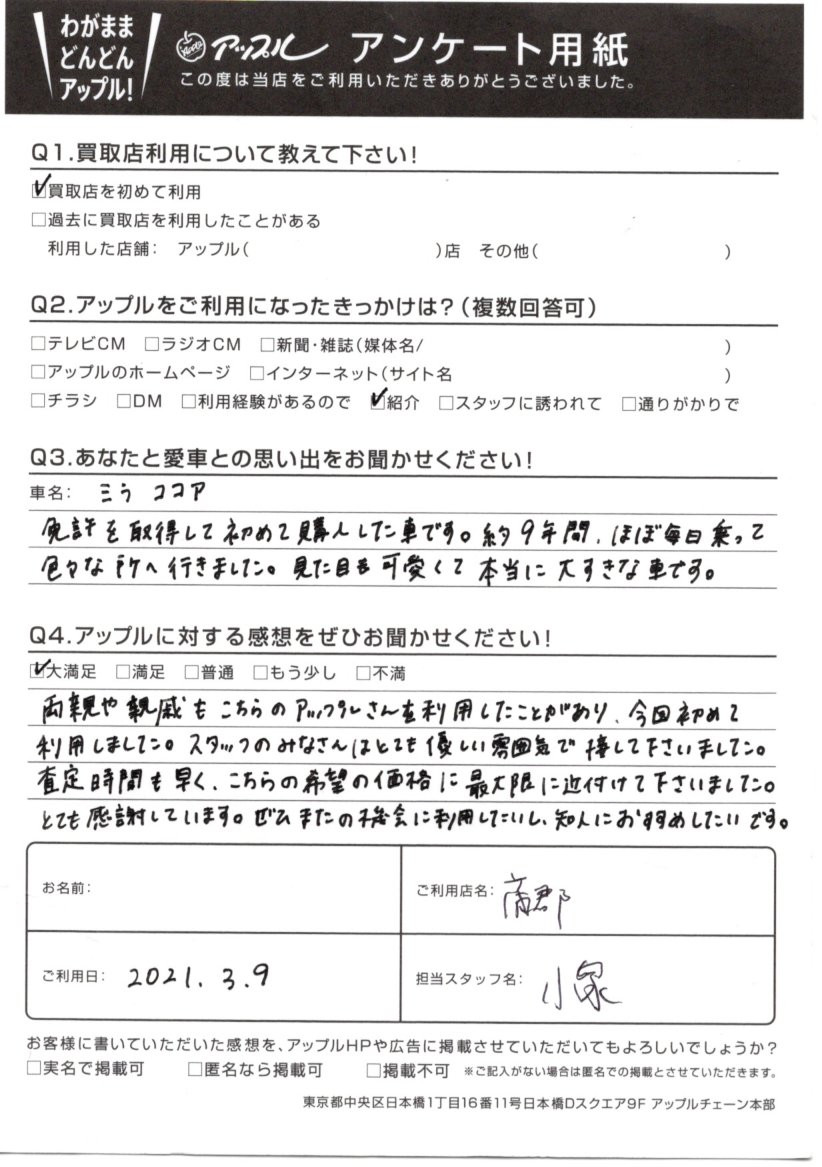 わがまま
どんどん
アップル!
アップル アンケート用紙
この度は当店をご利用いただきありがとうございました。
Q1.買取店利用について教えて下さい!
☑買取店を初めて利用
□過去に買取店を利用したことがある
利用した店舗: アップル( )店 その他( )
Q2.アップルをご利用になったきっかけは?(複数回答可)
□テレビCM □ラジオCM □新聞・雑誌(媒体名/ )
□アップルのホームページ □インターネット(サイト名 )
□チラシ □DM □利用経験があるので ☑紹介 □スタッフに誘われて □通りがかりで
Q3.あなたと愛車との思い出をお聞かせください!
車名: ミラ ココア
免許を取得して初めて購入した車です。約9年間、ほぼ毎日乗って
色々な所へ行きました。見た目も可愛くて本当に大すきな車です。
Q4.アップルに対する感想をぜひお聞かせください!
☑大満足 □満足 □普通 □もう少し □不満
両親や親戚もこちらのアップルさんを利用したことがあり、今回初めて
利用しました。スタッフのみなさんはとても優しい雰囲気で接して下さいました。
査定時間も早く、こちらの希望の価格に最大限に近付けて下さいました。
とても感謝しています。ぜひまたの機会に利用したいし、知人におすすめしたいです。
お名前:
ご利用店名: 蒲郡
ご利用日: 2021.3.9
担当スタッフ名: 小家
お客様に書いていただいた感想を、アップルHPや広告に掲載させていただいてもよろしいでしょうか?
□実名で掲載可 □匿名なら掲載可 □掲載不可 ※ご記入がない場合は匿名での掲載とさせていただきます。
東京都中央区日本橋1丁目16番11号日本橋Dスクエア9F アップルチェーン本部